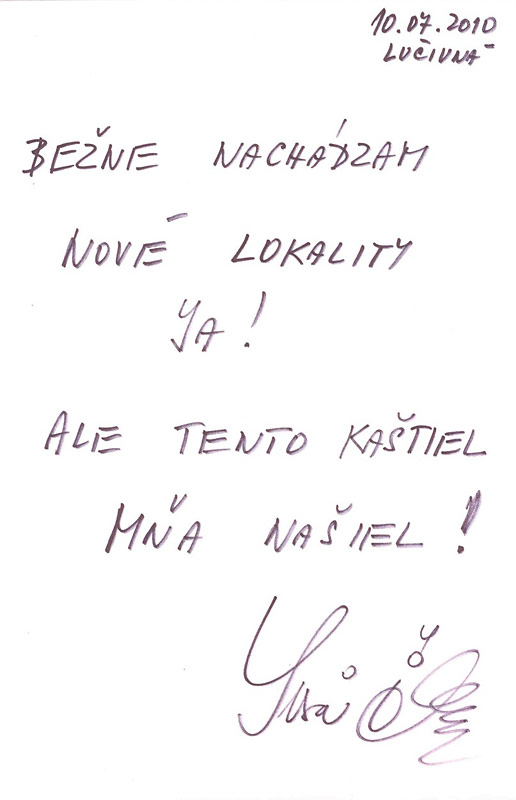 10.07.2010
LUČIVNÁ
BEŽNE NACHÁDZAM
NOVÉ LOKALITY
JA!
ALE TENTO KAŠTIEL
MŇA NAŠIEL!